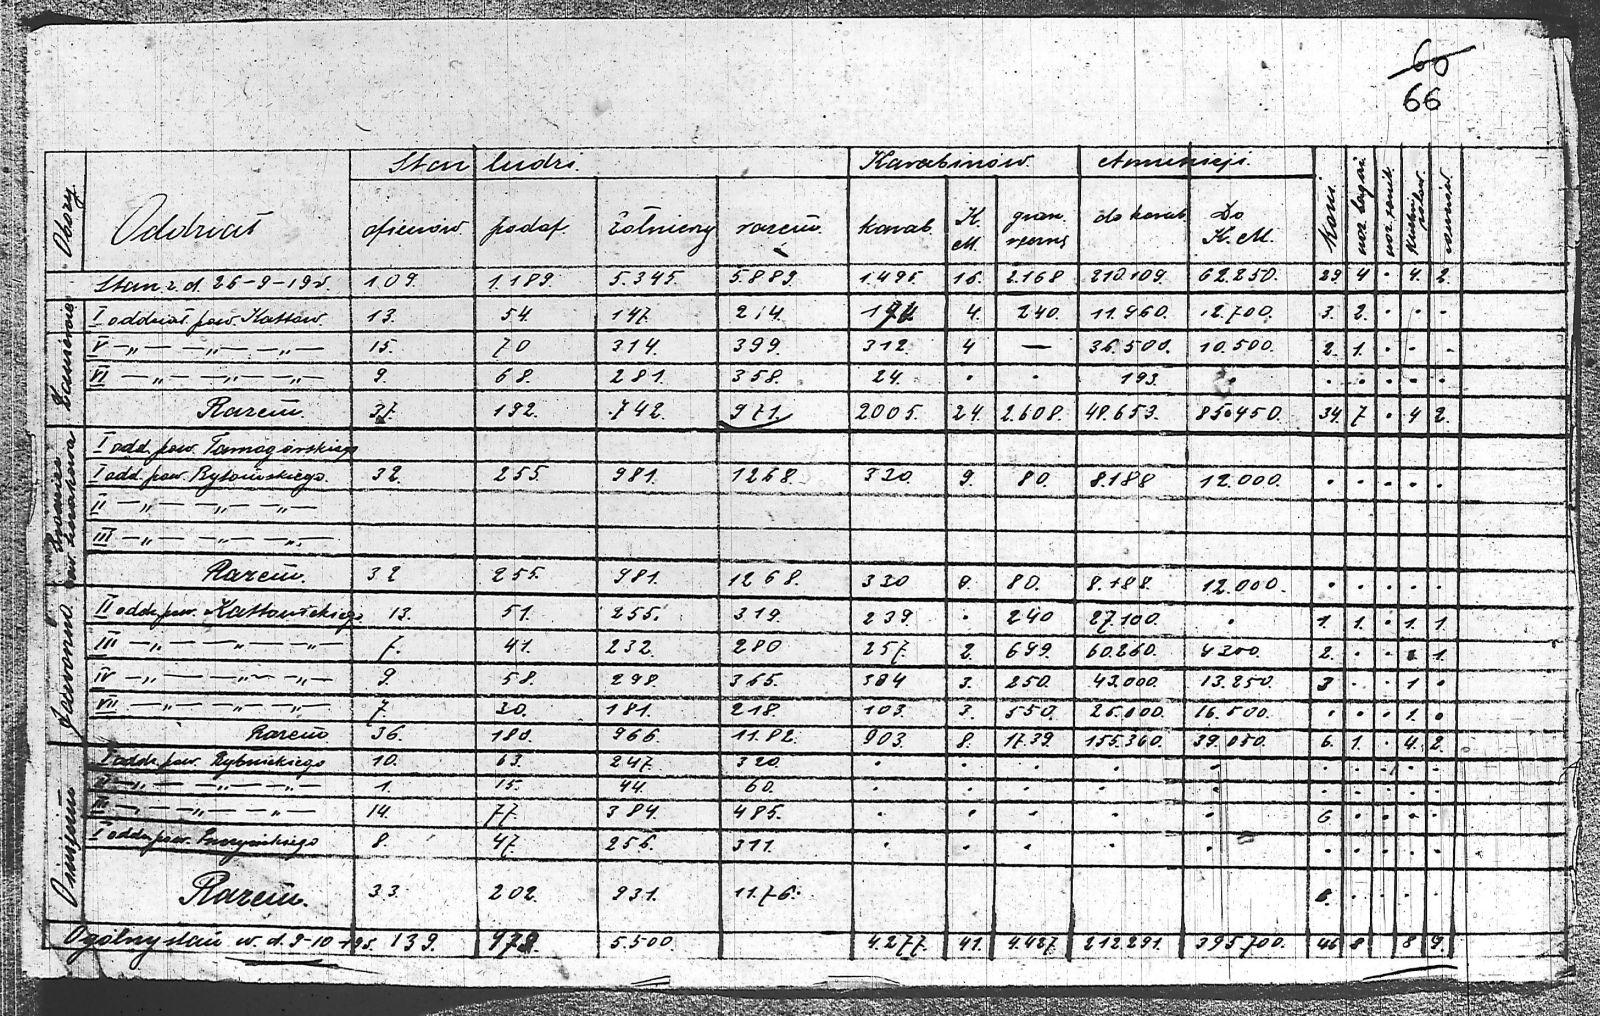 60
66
Obozy Oddział Stan ludzi. Karabinów. Amunicji.
oficerów podof. żołnierzy razem karab. K. M. gran. ręczne do karab. Do K. M. koni woz. bagaż.
Stan z d. 26-9-19r. 109. 1.189. 5.345. 5.889. 1.495. 16. 2.168 210.109. 62.250. 29 4 . 4. 2.
I oddział pow. Katow. 13. 54. 147. 214. 4. 240. 11.960. 12.700. 3. 2. . . .
V —„— —„— —„— 15. 70 314. 399. 312. 4 — 36.500. 10.500. 2. 1. . . .
VI —„— —„— —„— 9. 68. 281. 358. 24. . . 193. . . . . . .
Razem. 37. 192. 742. 971. 2005. 24. 2.608. 48.653. 85.450. 34. 7 . 4 2.
I odd. pow. Tarnogórskiego
I odd. pow. Bytomskiego. 32. 255. 981. 1268. 330. 9. 80. 8.188 12.000. . . . . .
II —„— —„— —„—
III —„— —„— —„—
Razem. 32 255. 981. 1268. 330 9. 80. 8.188. 12.000. . . . . .
II oddz. pow. Katowickiego 13. 51. 255. 319. 239 . 240 27.100. . 1. 1. . 1. 1.
III —„— —„— —„— 7. 41. 232. 280 257. 2. 699. 60.260. 4300. 2. . . 1.
IV —„— —„— —„— 9. 58. 298. 365. 304 3. 250. 43.000. 13.250. 3 . . 1 .
VII —„— —„— —„— 7. 30. 181. 218. 103. 3. 550. 25.000. 16.500. . . . 1. .
Razem 36. 180. 966. 11.82. 903. 8. 17.39. 155.360. 39.050. 6. 1. . 4. 2.
I oddz. pow. Rybnickiego 10. 63. 247. 320. . . . . . . . . . .
II —„— —„— —„— 1. 15. 44. 60. . . . . . . . . . .
III —„— —„— —„— 14. 77. 384. 485. . . . . . 6. . . . .
I oddz. pow. 8. 47. 256. 311. . . . . . . . . . .
Razem. 33. 202. 931. 11.76. 6. . . . .
Ogólny stan w. d. 9-10-19r. 139. 979. 5.500. 4.277. 41. 4.427. 212.291. 395.700. 46 8 8 9.
Jaworzno
Oświęcim